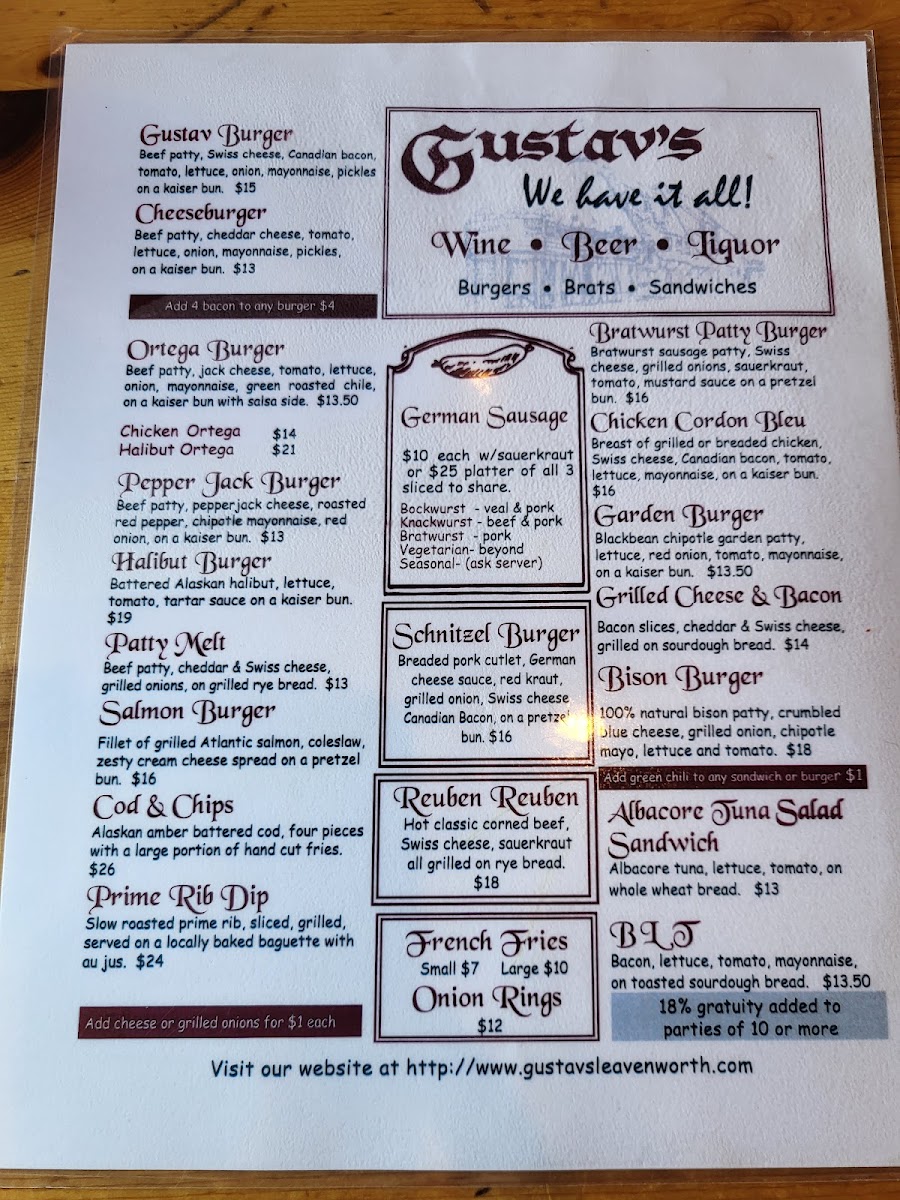 Gustav Burger
Beef patty, Swiss cheese, Canadian bacon,
tomato, lettuce, onion, mayonnaise, pickles
on a kaiser bun. $15
Cheeseburger
Beef patty, cheddar cheese, tomato,
lettuce, onion, mayonnaise, pickles,
on a kaiser bun. $13
Add 4 bacon to any burger $4
Ortega Burger
Beef patty, jack cheese, tomato, lettuce,
onion, mayonnaise, green roasted chile,
on a kaiser bun with salsa side. $13.50
Chicken Ortega $14
Halibut Ortega $21
Pepper Jack Burger
Beef patty, pepperjack cheese, roasted
red pepper, chipotle mayonnaise, red
onion, on a kaiser bun. $13
Halibut Burger
Battered Alaskan halibut, lettuce,
tomato, tartar sauce on a kaiser bun.
$19
Patty Melt
Beef patty, cheddar & Swiss cheese,
grilled onions, on grilled rye bread. $13
Salmon Burger
Fillet of grilled Atlantic salmon, coleslaw,
zesty cream cheese spread on a pretzel
bun. $16
Cod & Chips
Alaskan amber battered cod, four pieces
with a large portion of hand cut fries.
$26
Prime Rib Dip
Slow roasted prime rib, sliced, grilled,
served on a locally baked baguette with
au jus. $24
Add cheese or grilled onions for $1 each
Gustav's
We have it all!
Wine • Beer • Liquor
Burgers • Brats • Sandwiches
German Sausage
$10 each w/sauerkraut
or $25 platter of all 3
sliced to share.
Bockwurst - veal & pork
Knackwurst - beef & pork
Bratwurst - pork
Vegetarian- beyond
Seasonal- (ask server)
Schnitzel Burger
Breaded pork cutlet, German
cheese sauce, red kraut,
grilled onion, Swiss cheese
Canadian Bacon, on a pretzel
bun. $16
Reuben Reuben
Hot classic corned beef,
Swiss cheese, sauerkraut
all grilled on rye bread.
$18
French Fries
Small $7 Large $10
Onion Rings
$12
Bratwurst Patty Burger
Bratwurst sausage patty, Swiss
cheese, grilled onions, sauerkraut,
tomato, mustard sauce on a pretzel
bun. $16
Chicken Cordon Bleu
Breast of grilled or breaded chicken,
Swiss cheese, Canadian bacon, tomato,
lettuce, mayonnaise, on a kaiser bun.
$16
Garden Burger
Blackbean chipotle garden patty,
lettuce, red onion, tomato, mayonnaise,
on a kaiser bun. $13.50
Grilled Cheese & Bacon
Bacon slices, cheddar & Swiss cheese,
grilled on sourdough bread. $14
Bison Burger
100% natural bison patty, crumbled
blue cheese, grilled onion, chipotle
mayo, lettuce and tomato. $18
Add green chili to any sandwich or burger $1
Albacore Tuna Salad
Sandwich
Albacore tuna, lettuce, tomato, on
whole wheat bread. $13
BLT
Bacon, lettuce, tomato, mayonnaise,
on toasted sourdough bread. $13.50
18% gratuity added to
parties of 10 or more
Visit our website at http://www.gustavsleavenworth.com